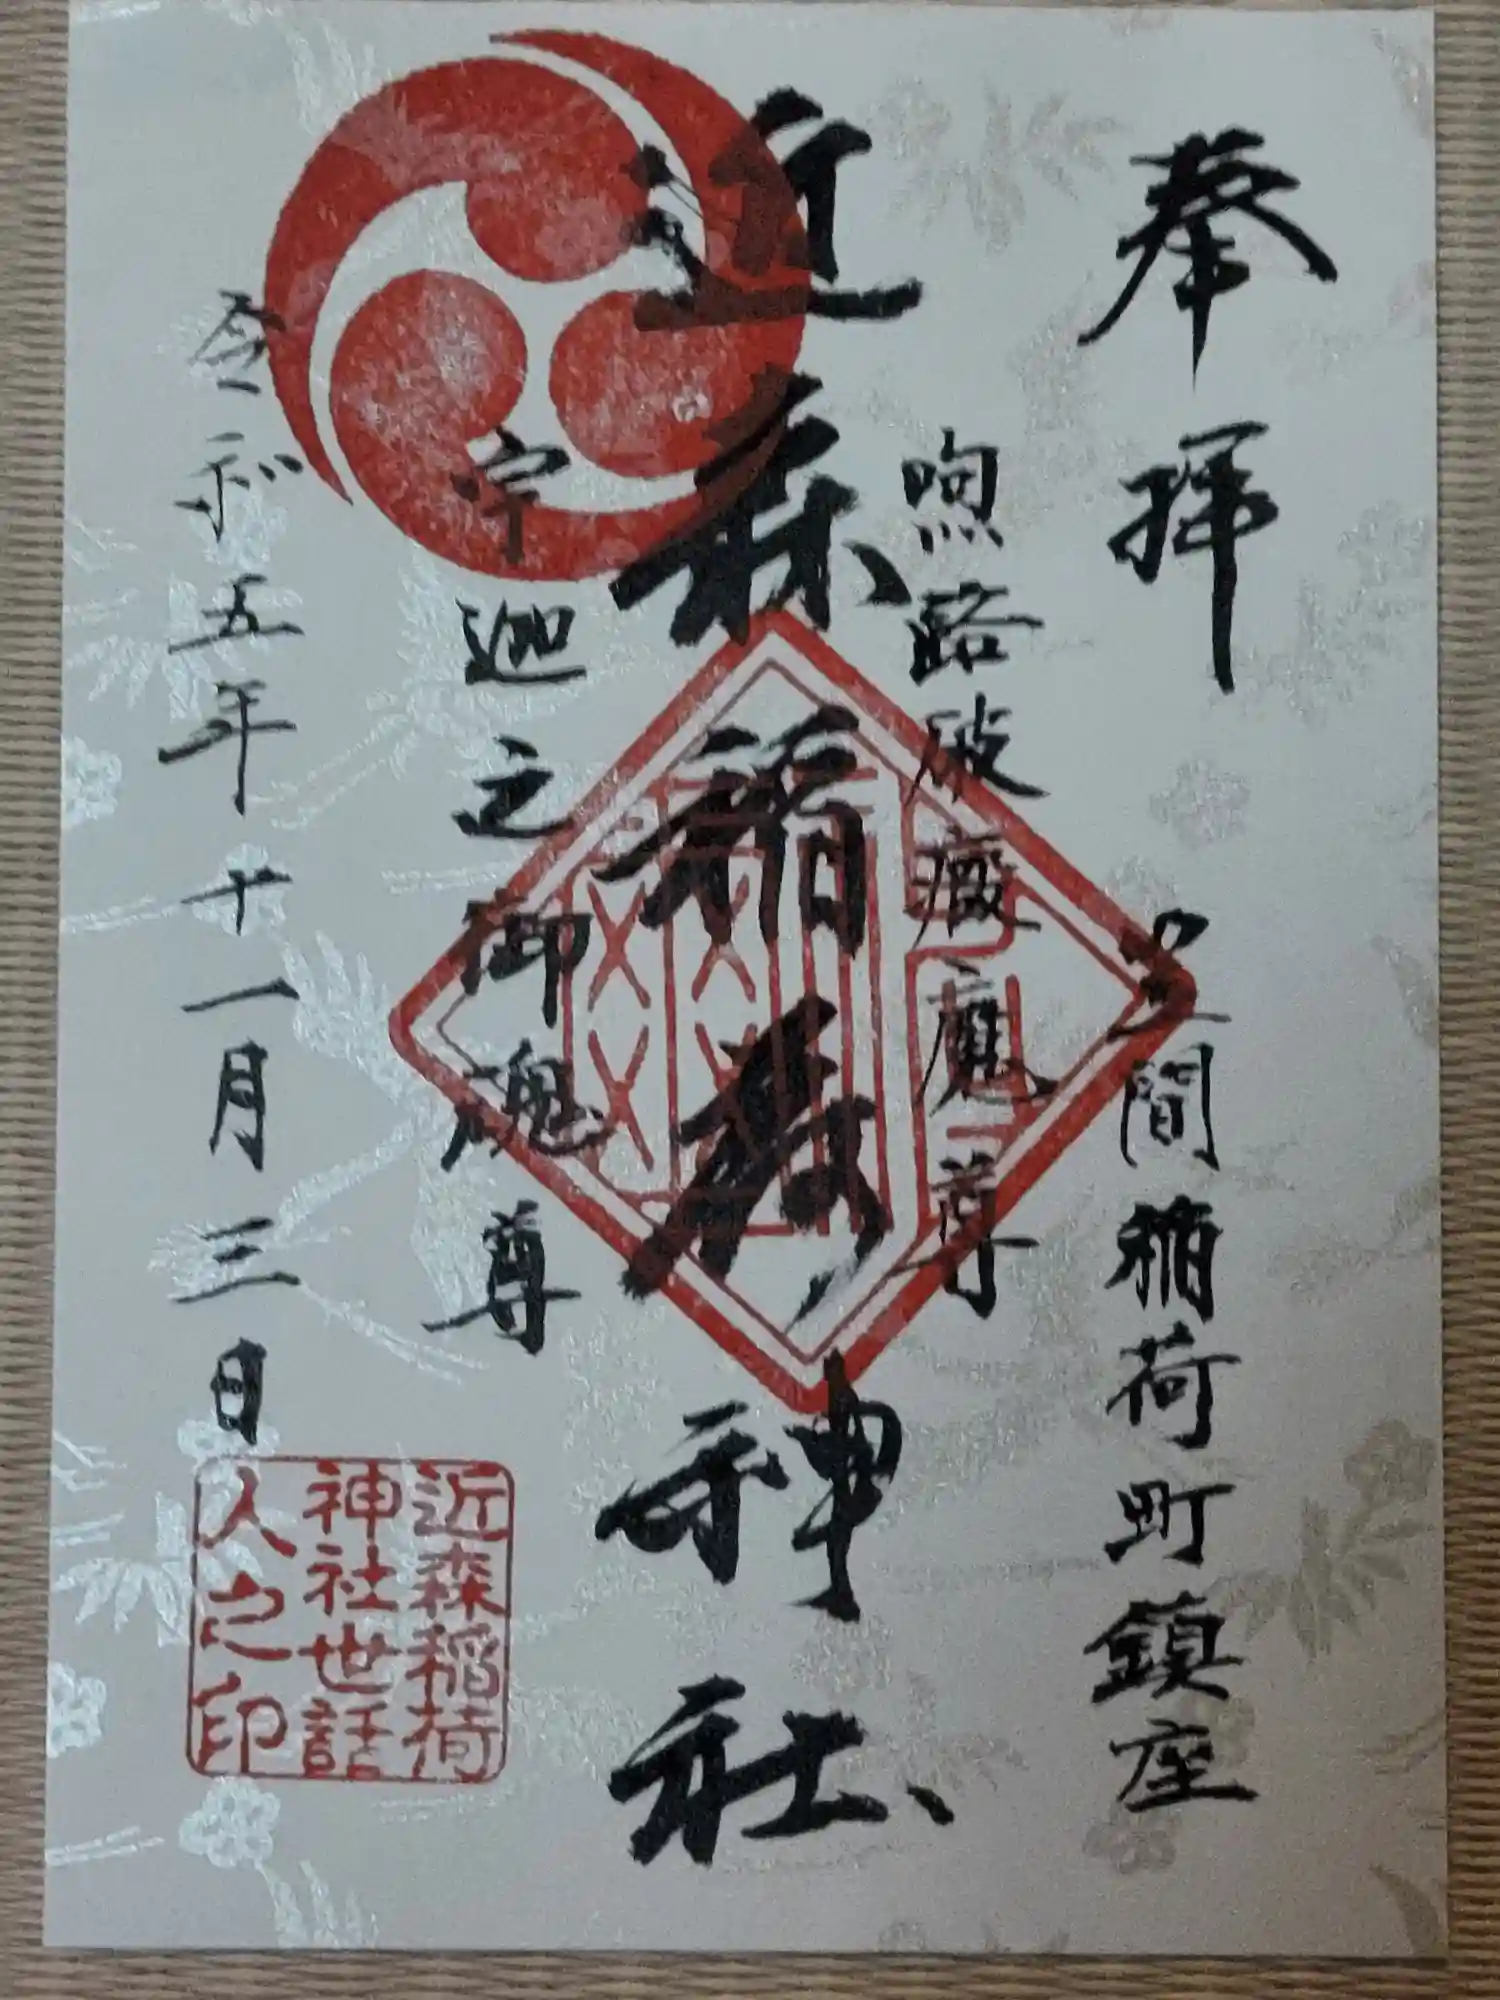 奉拝
上間稲荷町鎮座
呴路破癈魔尊
近森稲荷神社
宇迦之御魂尊
令和五年十一月三日
近森稲荷
神社世話
人之印